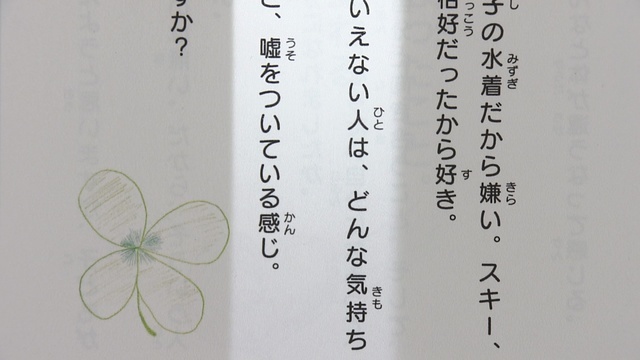 子の水着だから嫌い。スキー、
格好だったから好き。
いえない人は、どんな気持ち
と、嘘をついている感じ。
すか？